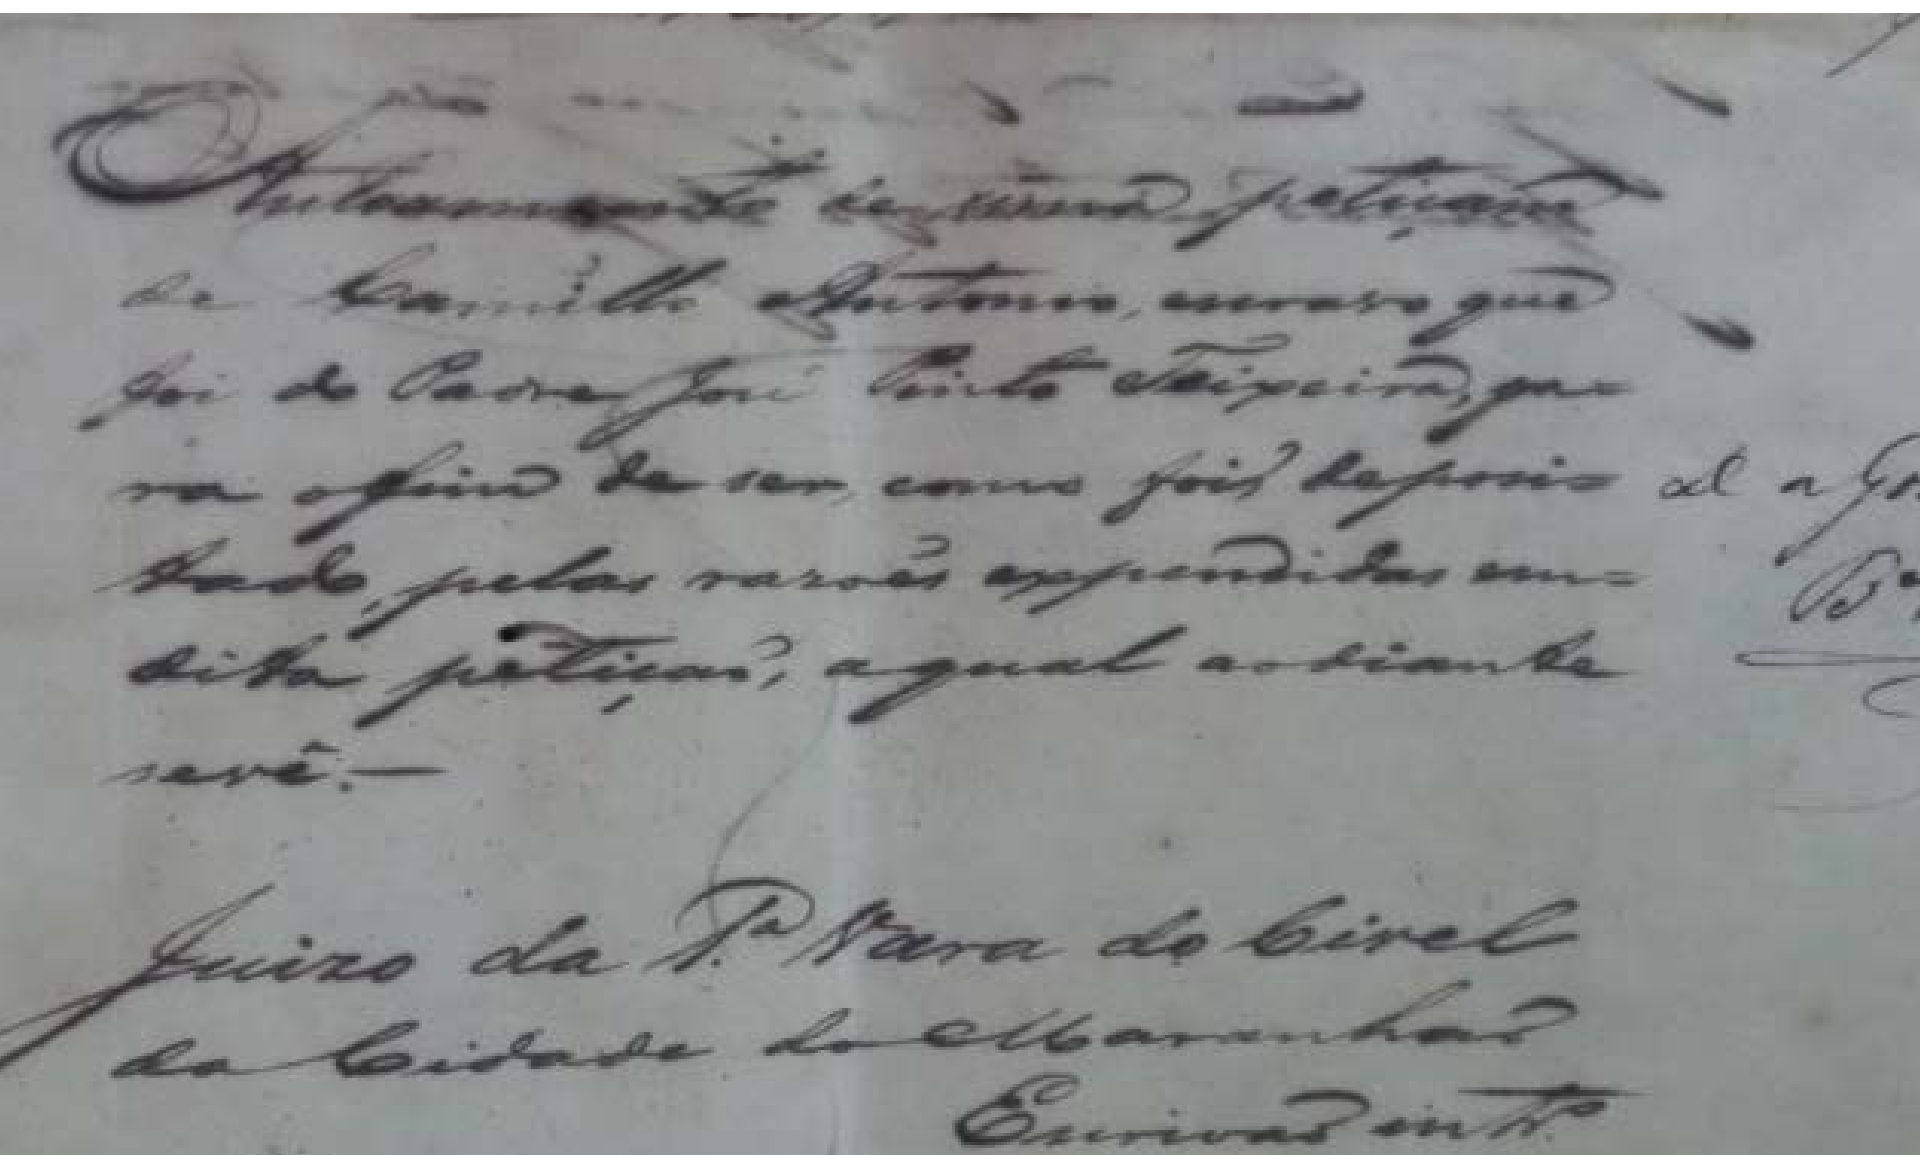 Autoamento de uma petiçam
de Camillo Antonio, escravo que
foi do Padre José Pinto Teixeira, pa=
ra o fim de ser, como foi, deposi=
tado, pelas rasões expendidas em=
dita petição, a qual ao diante
se vê.—
Juizo da 1.ª Vara do Civel
da Cidade do Maranhão
Escrivão intr.º